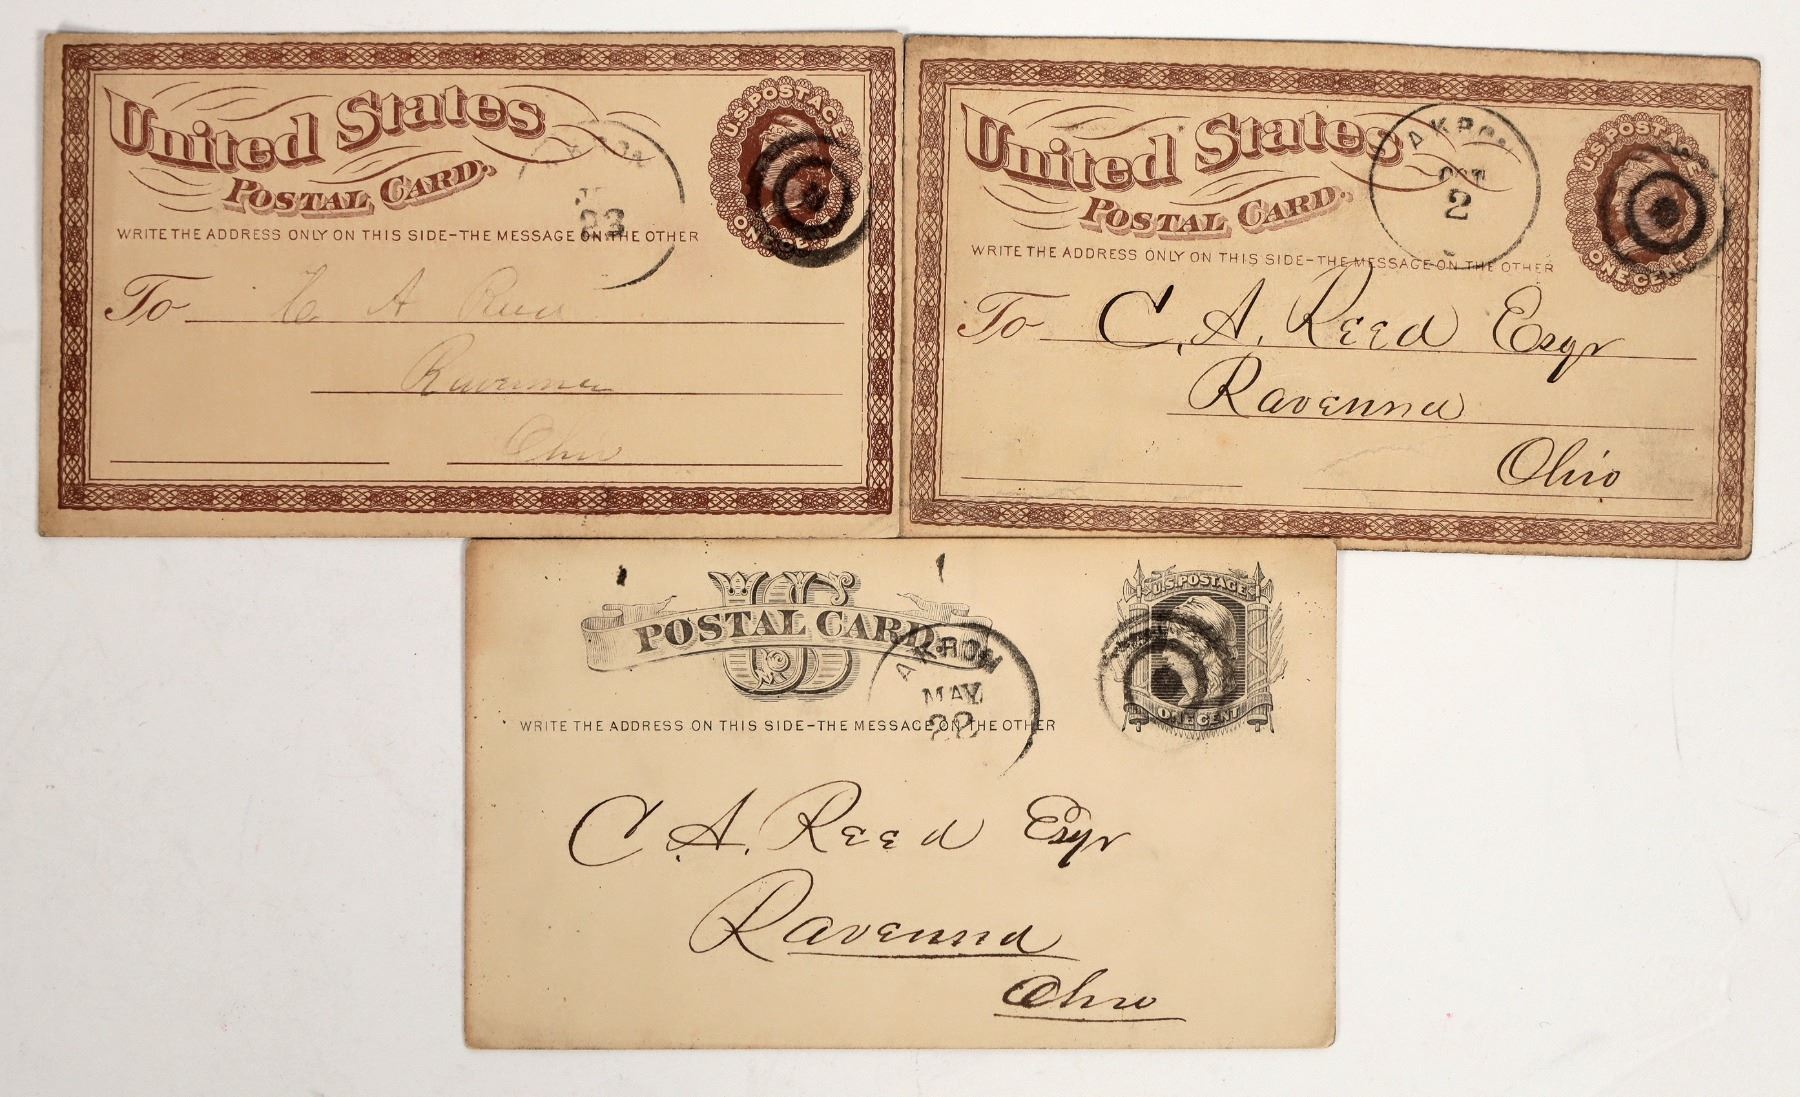 United States
POSTAL CARD.
WRITE THE ADDRESS ONLY ON THIS SIDE-THE MESSAGE ON THE OTHER
U.S. POSTAGE
ONE CENT
23
To C A Reed
Ravenna
Ohio
United States
POSTAL CARD.
WRITE THE ADDRESS ONLY ON THIS SIDE-THE MESSAGE ON THE OTHER
AKRON
OCT
2
U.S. POSTAGE
ONE CENT
To C. A. Reed Esqr
Ravenna
Ohio
US
POSTAL CARD.
AKRON
MAY
U.S. POSTAGE
ONE CENT
WRITE THE ADDRESS ON THIS SIDE-THE MESSAGE ON THE OTHER
C. A. Reed Esqr
Ravenna
Ohio